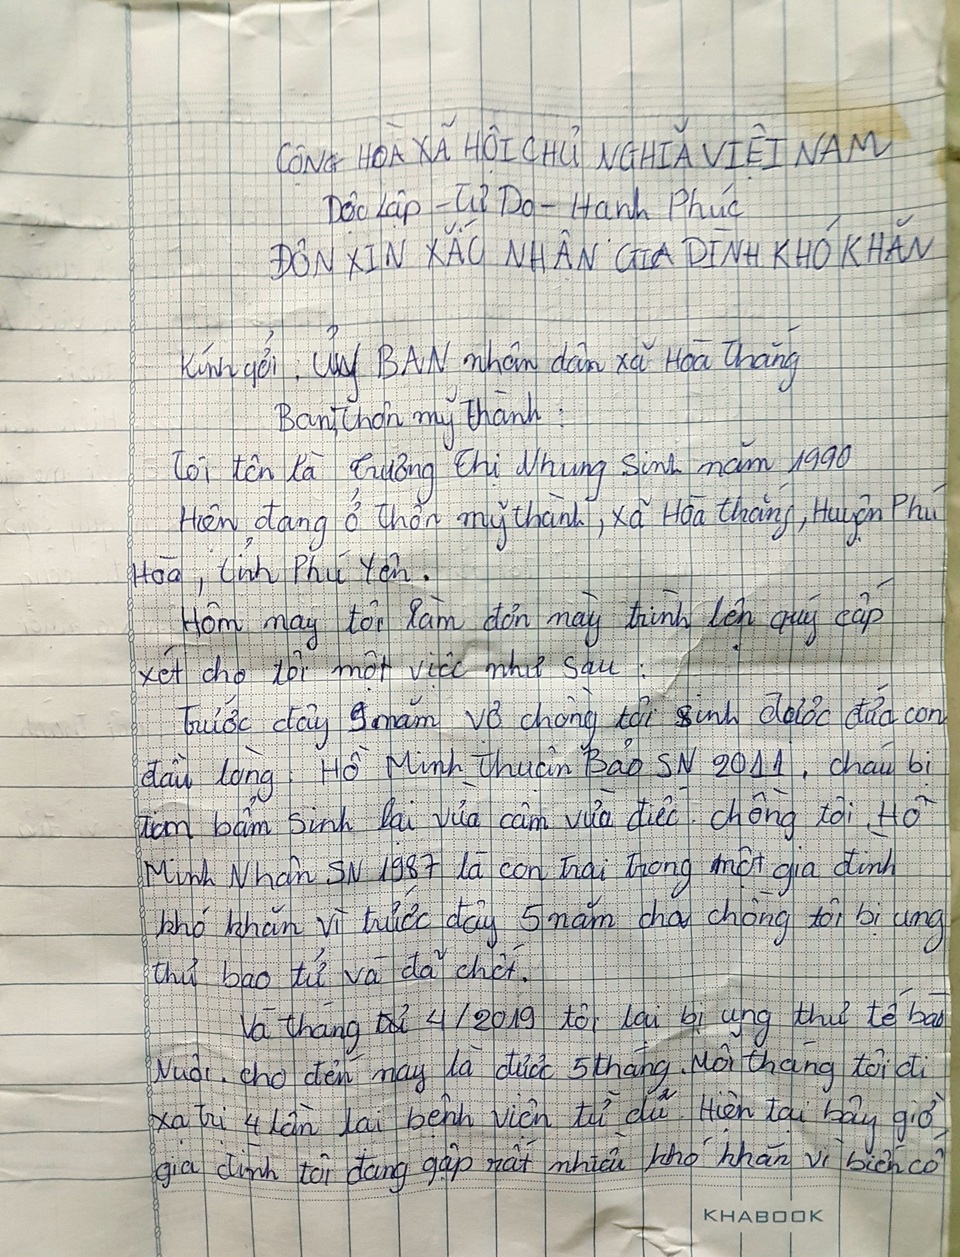 CỘNG HOÀ XÃ HỘI CHỦ NGHĨA VIỆT NAM
Dộc Lập - Tự Do - Hạnh Phúc
ĐƠN XIN XẮC NHẬN GIA DÌNH KHÓ KHĂN
Kính gởi : Ủy BAN nhân dân xã Hoà Thắng
Ban Thôn mỹ thành :
Tôi tên là Trương Thị Nhung Sinh năm 1990
Hiện đang ở thôn mỹ thành, xã Hòa thắng, Huyện Phú
Hòa, tỉnh Phú Yên.
Hôm nay tôi làm đơn này trình lên quý cấp
xét cho tôi một việc như sau :
Trước dây 9 năm vợ chồng tôi sinh được đứa con
đầu lòng. Hồ Minh Thuận Bảo SN 2011, cháu bị
tim bẩm sinh lại vừa câm vừa điếc. chồng tôi Hồ
Minh Nhân SN 1987 là con trai trong một gia đình
khó khăn vì trước đây 5 năm cha chồng tôi bị ung
thư bao tử và đã chết.
Và tháng 4/2019 tôi lại bị ung thư tế bào
Nuôi. cho đến nay là được 5 tháng. Mỗi tháng tôi đi
xạ trị 4 lần lại bệnh viện từ dũ. Hiện tại bây giờ,
gia đình tôi đang gặp rất nhiều khó khăn vì biến cố
KHABOOK